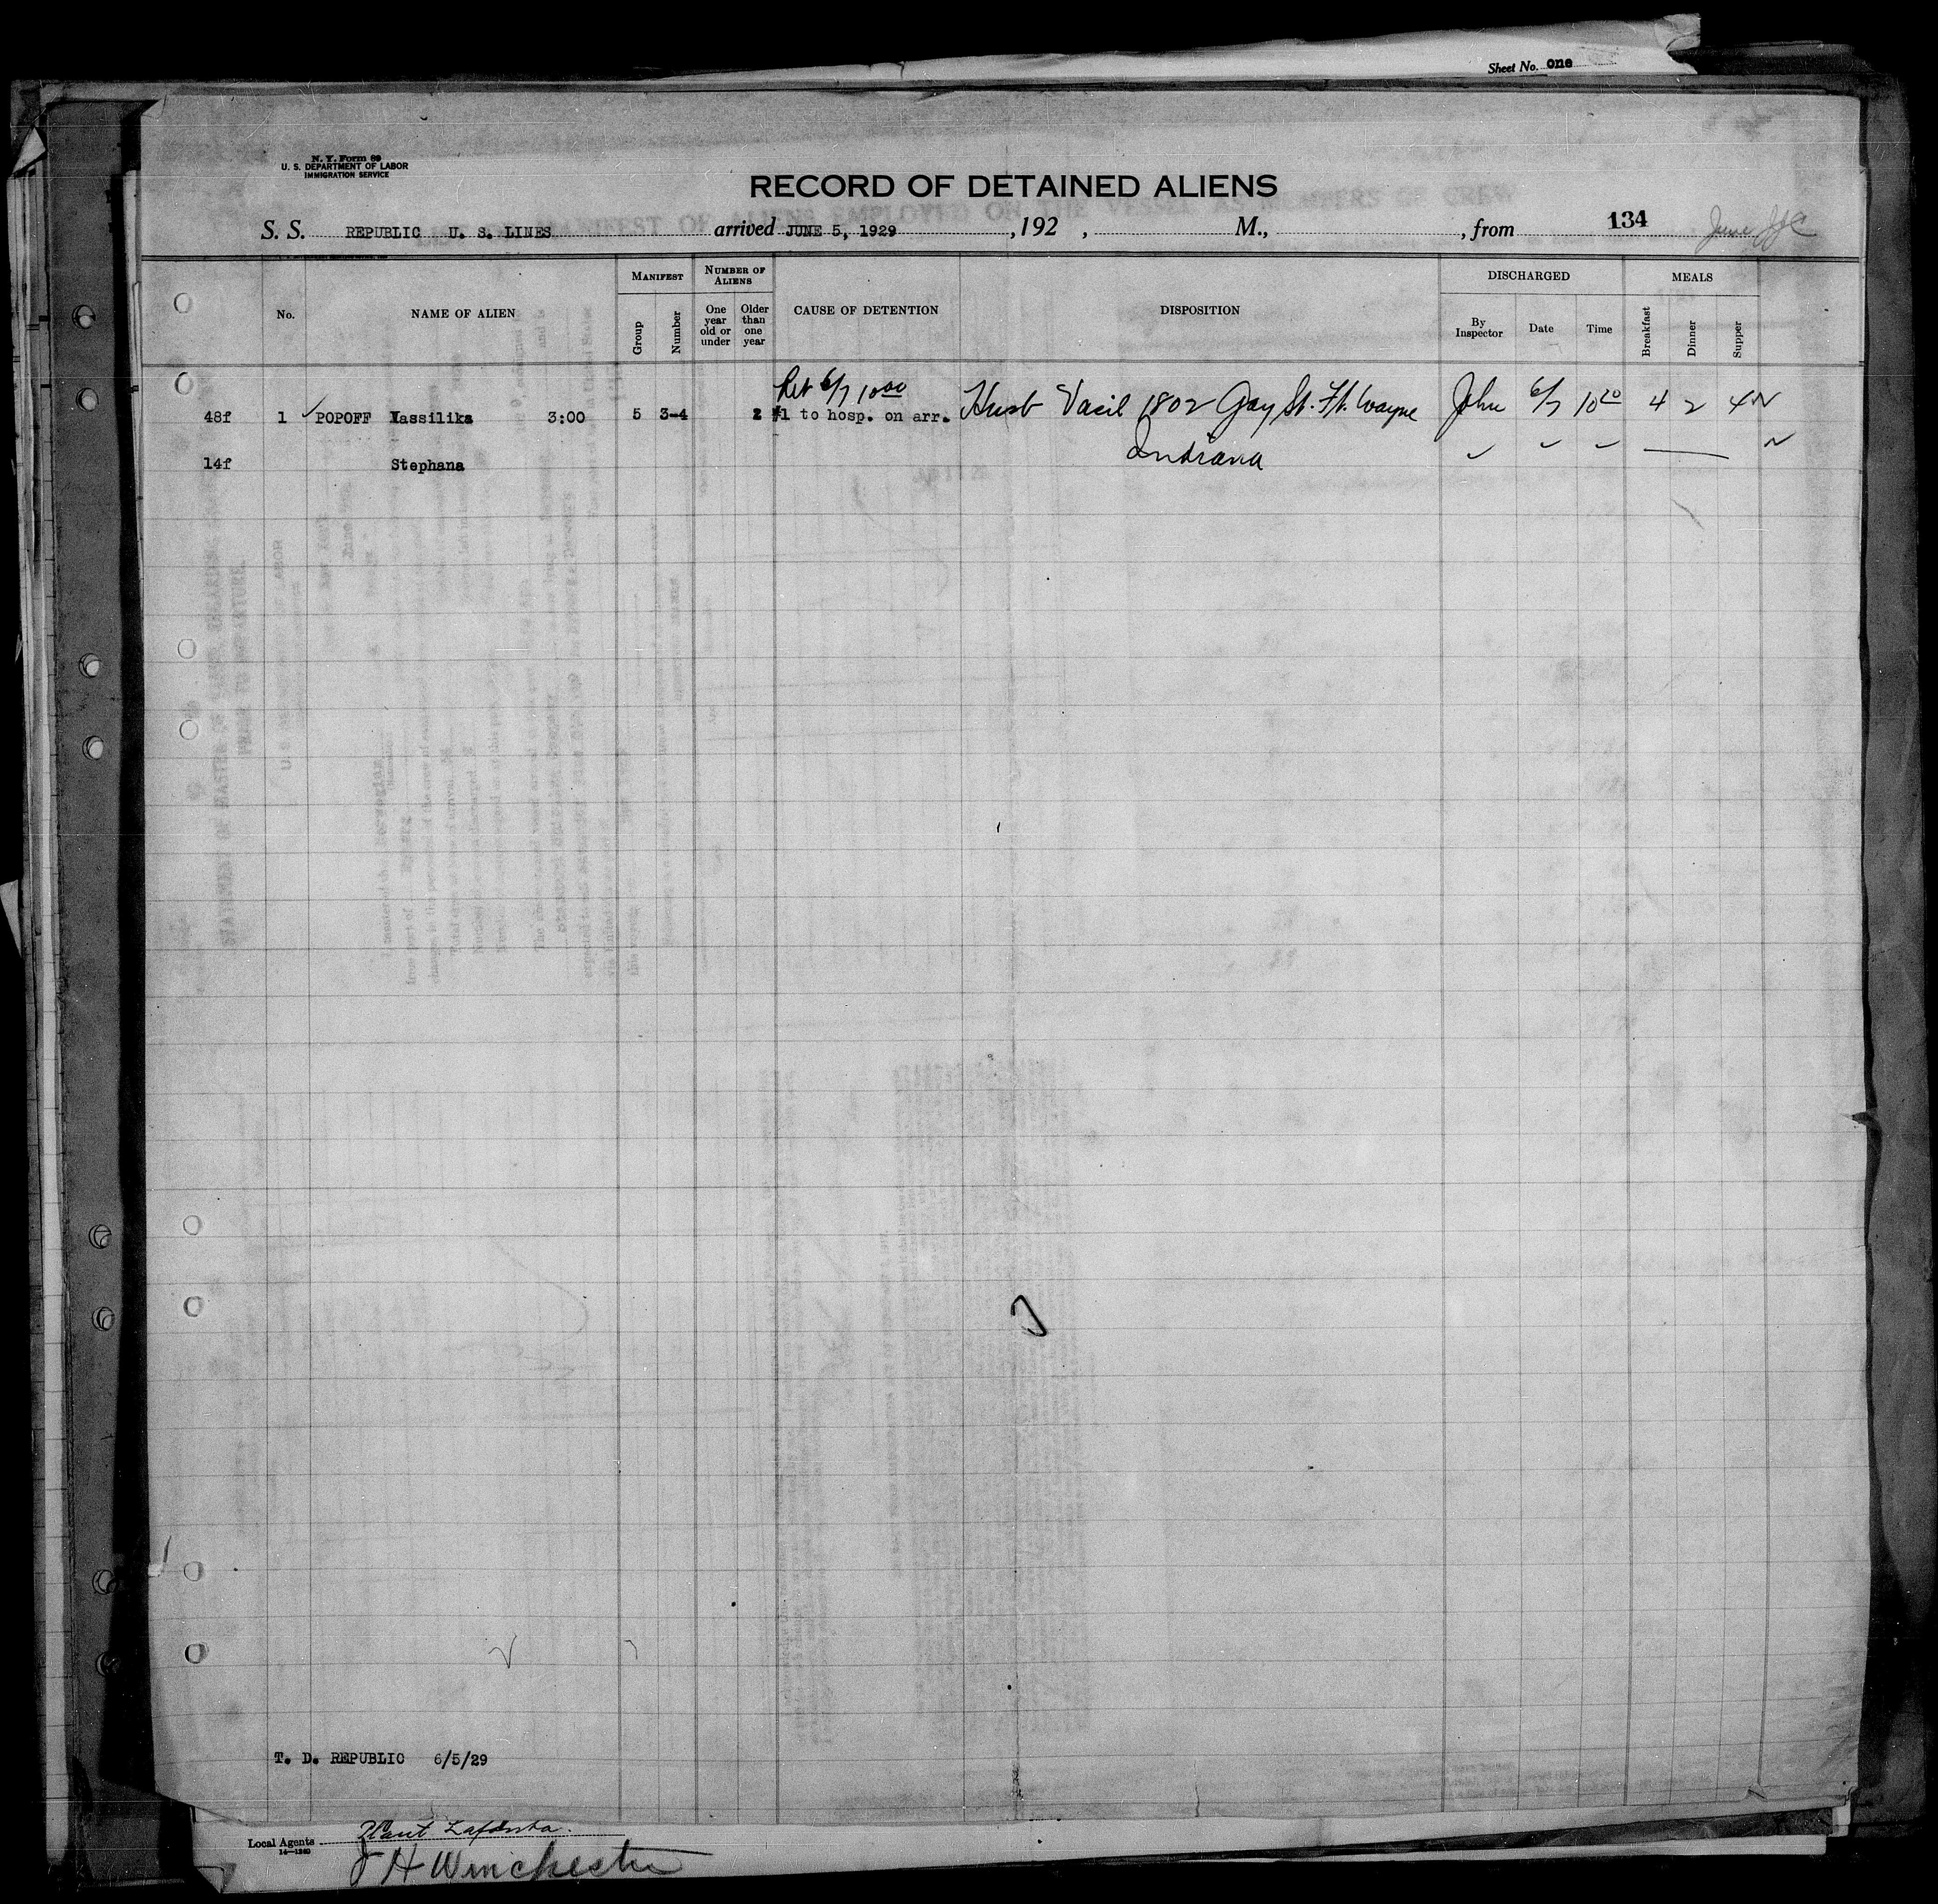 Sheet No. one
N. Y. Form 89
U. S. DEPARTMENT OF LABOR
IMMIGRATION SERVICE
RECORD OF DETAINED ALIENS
S. S. REPUBLIC U. S. LINES arrived JUNE 5, 1929 , 192 , M., , from 134 June
No. NAME OF ALIEN MANIFEST Group Number NUMBER OF ALIENS One year old or under Older than one year CAUSE OF DETENTION DISPOSITION DISCHARGED By Inspector Date Time MEALS Breakfast Dinner Supper
Ret 6/7 10 00
48f 1 ✓ POPOFF Vassilika 3:00 5 3-4 2 #1 to hosp. on arr. Husb Vacil 1802 Gay St. Ft. Wayne John 6/7 10 20 4 2 4
14f Stephana Indiana
T. D. REPUBLIC 6/5/29
Local Agents
14—1240
J H Winchester